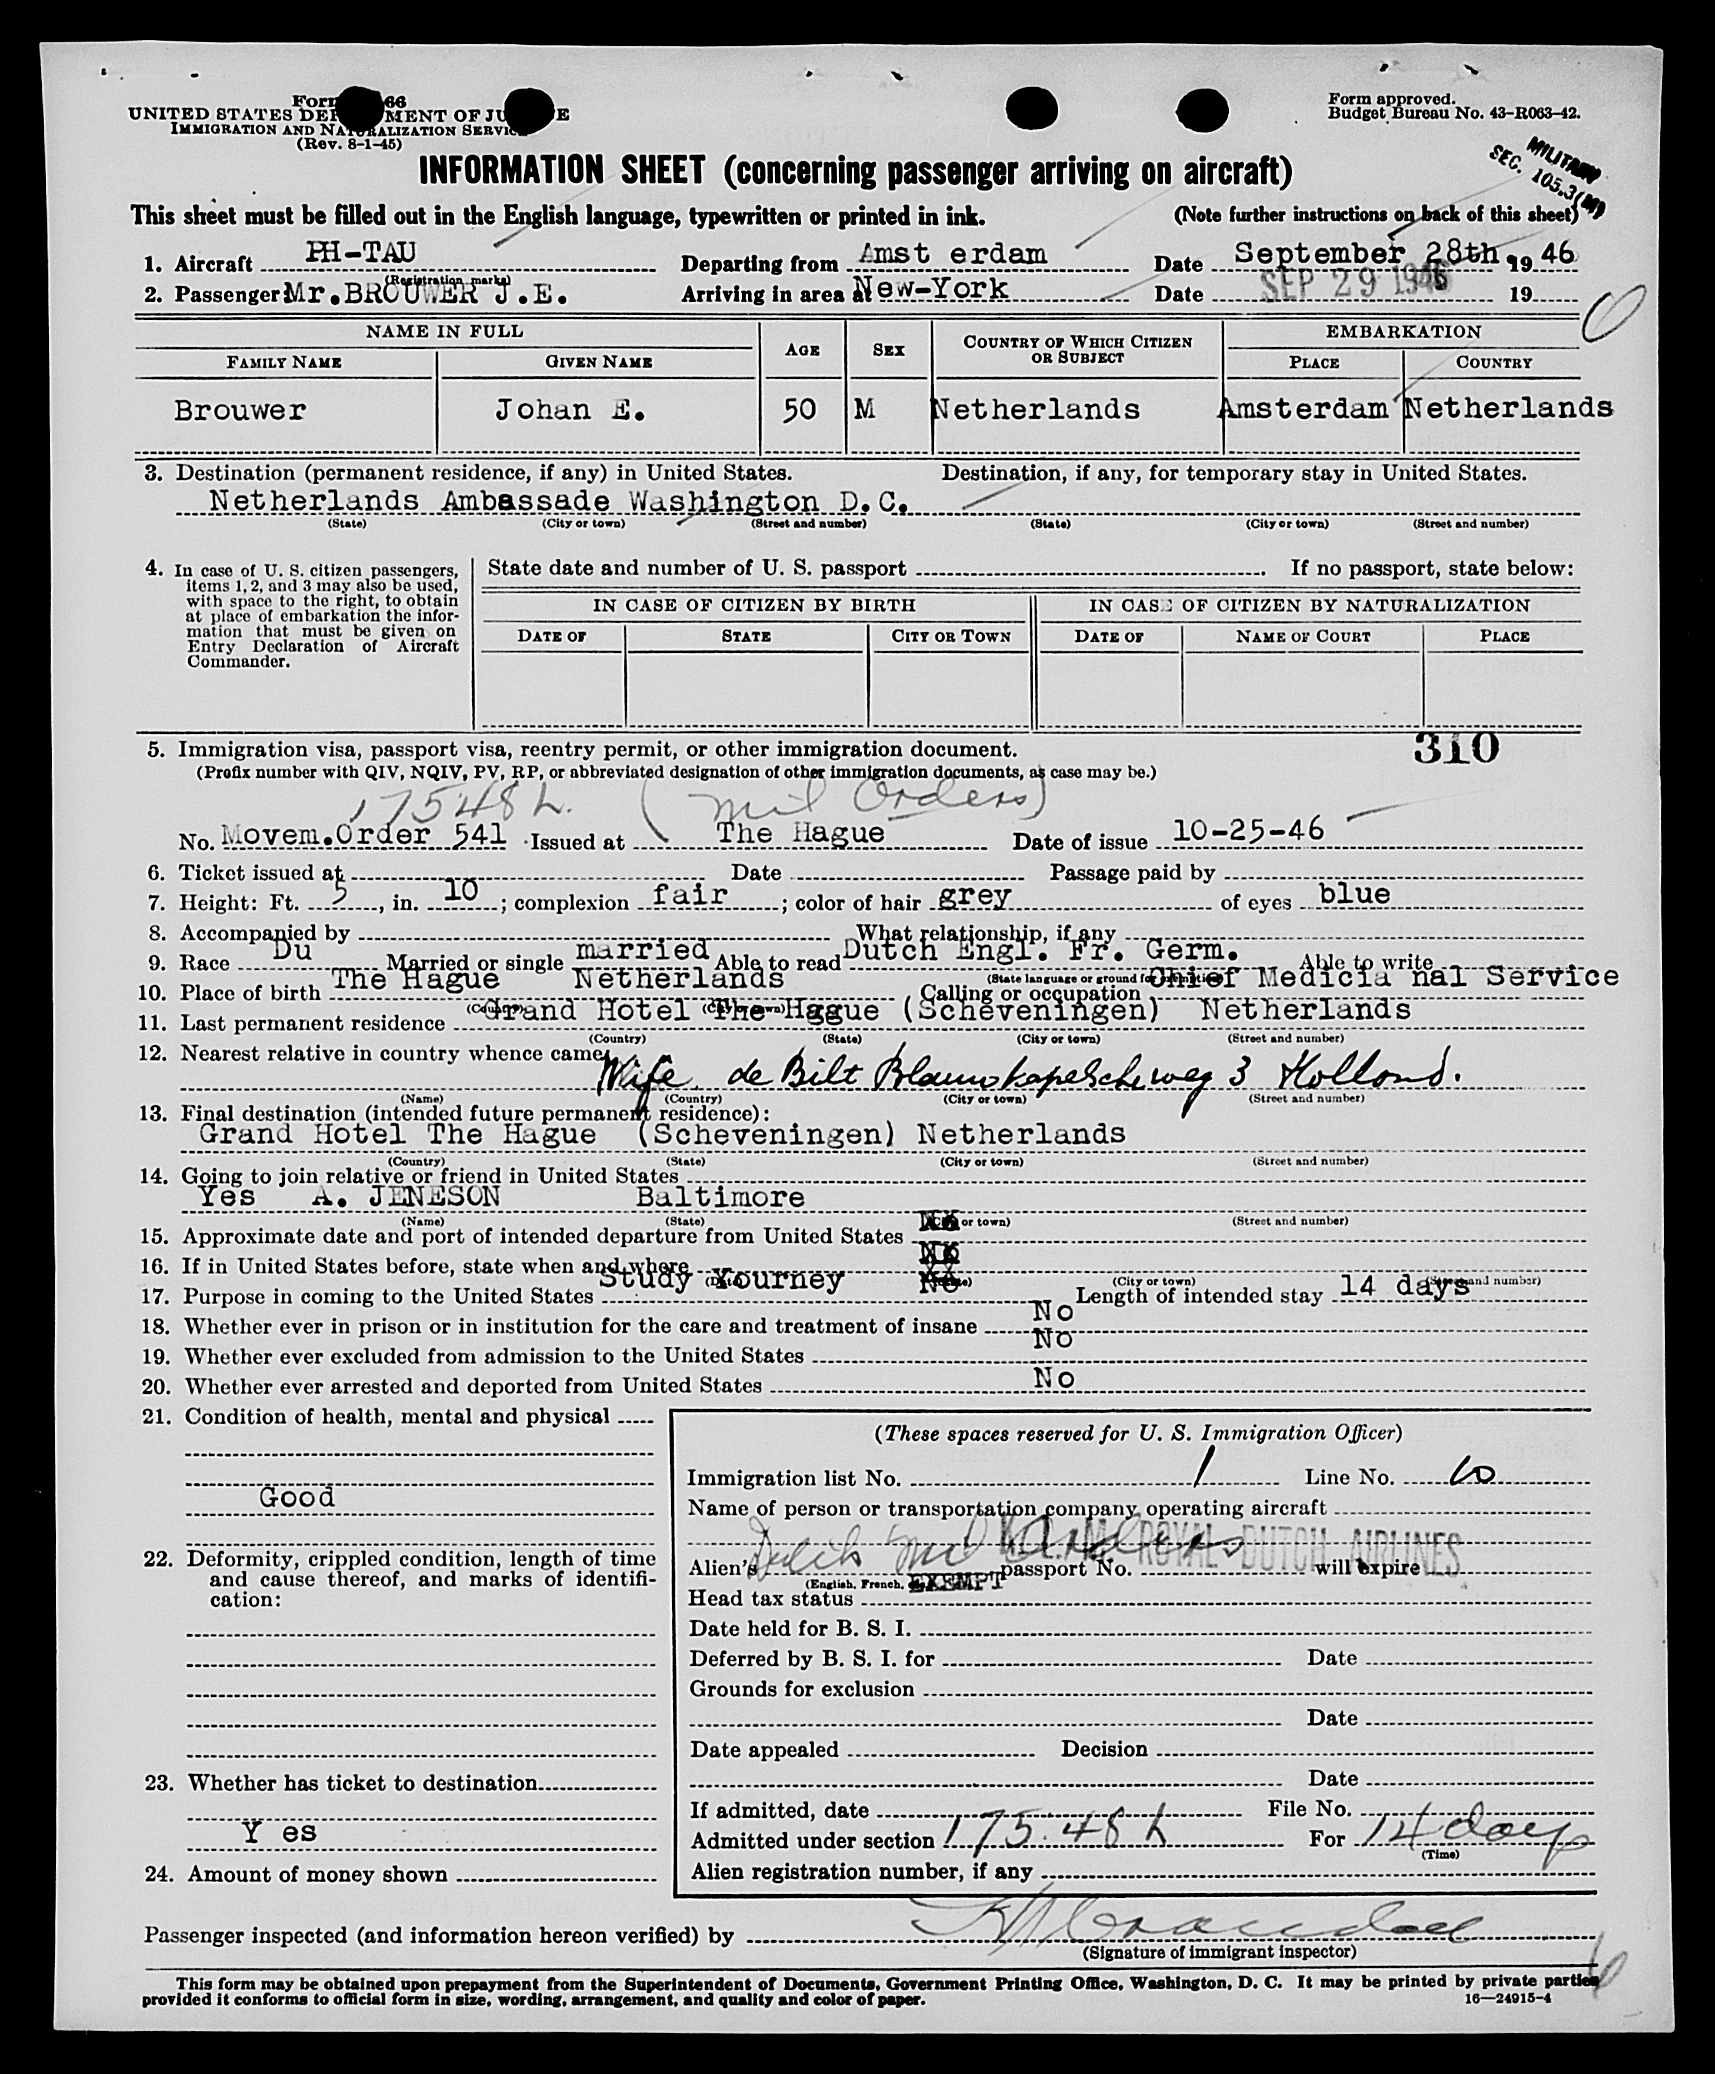 Form 66
UNITED STATES DEP MENT OF JU E
IMMIGRATION AND NATURALIZATION SERVIC
(Rev. 8-1-45)
Form approved.
Budget Bureau No. 43-R063-42.
INFORMATION SHEET (concerning passenger arriving on aircraft)
MILITARY
SEC. 105.3(M)
This sheet must be filled out in the English language, typewritten or printed in ink. (Note further instructions on back of this sheet)
1. Aircraft PH-TAU Departing from Amst erdam Date September 28th, 19 46
(Registration marks)
2. Passenger Mr.BROUWER J.E. Arriving in area at New-York Date SEP 29 1946 19
NAME IN FULL AGE SEX COUNTRY OF WHICH CITIZEN OR SUBJECT EMBARKATION
FAMILY NAME GIVEN NAME PLACE COUNTRY
Brouwer Johan E. 50 M Netherlands Amsterdam Netherlands
3. Destination (permanent residence, if any) in United States. Destination, if any, for temporary stay in United States.
Netherlands Ambassade Washington D.C.
(State) (City or town) (Street and number) (State) (City or town) (Street and number)
4. In case of U. S. citizen passengers,
items 1, 2, and 3 may also be used,
with space to the right, to obtain
at place of embarkation the infor-
mation that must be given on
Entry Declaration of Aircraft
Commander.
State date and number of U. S. passport . If no passport, state below:
IN CASE OF CITIZEN BY BIRTH IN CASE OF CITIZEN BY NATURALIZATION
DATE OF STATE CITY OR TOWN DATE OF NAME OF COURT PLACE
5. Immigration visa, passport visa, reentry permit, or other immigration document. 310
(Prefix number with QIV, NQIV, PV, RP, or abbreviated designation of other immigration documents, as case may be.)
175.48 h. (Mil Orders)
No. Movem.Order 541 Issued at The Hague Date of issue 10-25-46
6. Ticket issued at Date Passage paid by
7. Height: Ft. 5, in. 10; complexion fair; color of hair grey of eyes blue
8. Accompanied by What relationship, if any
9. Race Du Married or single married Able to read Dutch Engl. Fr. Germ. Able to write
10. Place of birth The Hague Netherlands Calling or occupation Chief Medicia nal Service
11. Last permanent residence Grand Hotel The Hague (Scheveningen) Netherlands
(Country) (State) (City or town) (Street and number)
12. Nearest relative in country whence came
Wife. de Bilt Blauwkapelscheweg 3 Holland.
(Name) (Country) (City or town) (Street and number)
13. Final destination (intended future permanent residence):
Grand Hotel The Hague (Scheveningen) Netherlands
(Country) (State) (City or town) (Street and number)
14. Going to join relative or friend in United States
Yes A. JENESON Baltimore
(Name) (State) (City or town) (Street and number)
15. Approximate date and port of intended departure from United States
16. If in United States before, state when and where
(City or town) (Street and number)
17. Purpose in coming to the United States Study Yourney Length of intended stay 14 days
18. Whether ever in prison or in institution for the care and treatment of insane No
19. Whether ever excluded from admission to the United States No
20. Whether ever arrested and deported from United States No
21. Condition of health, mental and physical
Good
22. Deformity, crippled condition, length of time
and cause thereof, and marks of identifi-
cation:
23. Whether has ticket to destination
Y es
24. Amount of money shown
(These spaces reserved for U. S. Immigration Officer)
Immigration list No. 1 Line No. 10
Name of person or transportation company operating aircraft
K.L.M. ROYAL DUTCH AIRLINES
Alien's Dutch Mil Orders passport No. will expire
(English, French,
Head tax status EXEMPT
Date held for B. S. I.
Deferred by B. S. I. for Date
Grounds for exclusion
Date
Date appealed Decision
Date
If admitted, date File No.
Admitted under section 175.48 h For 14 days
(Time)
Alien registration number, if any
Passenger inspected (and information hereon verified) by
(Signature of immigrant inspector)
This form may be obtained upon prepayment from the Superintendent of Documents, Government Printing Office, Washington, D. C. It may be printed by private parties
provided it conforms to official form in size, wording, arrangement, and quality and color of paper. 16—24915-4